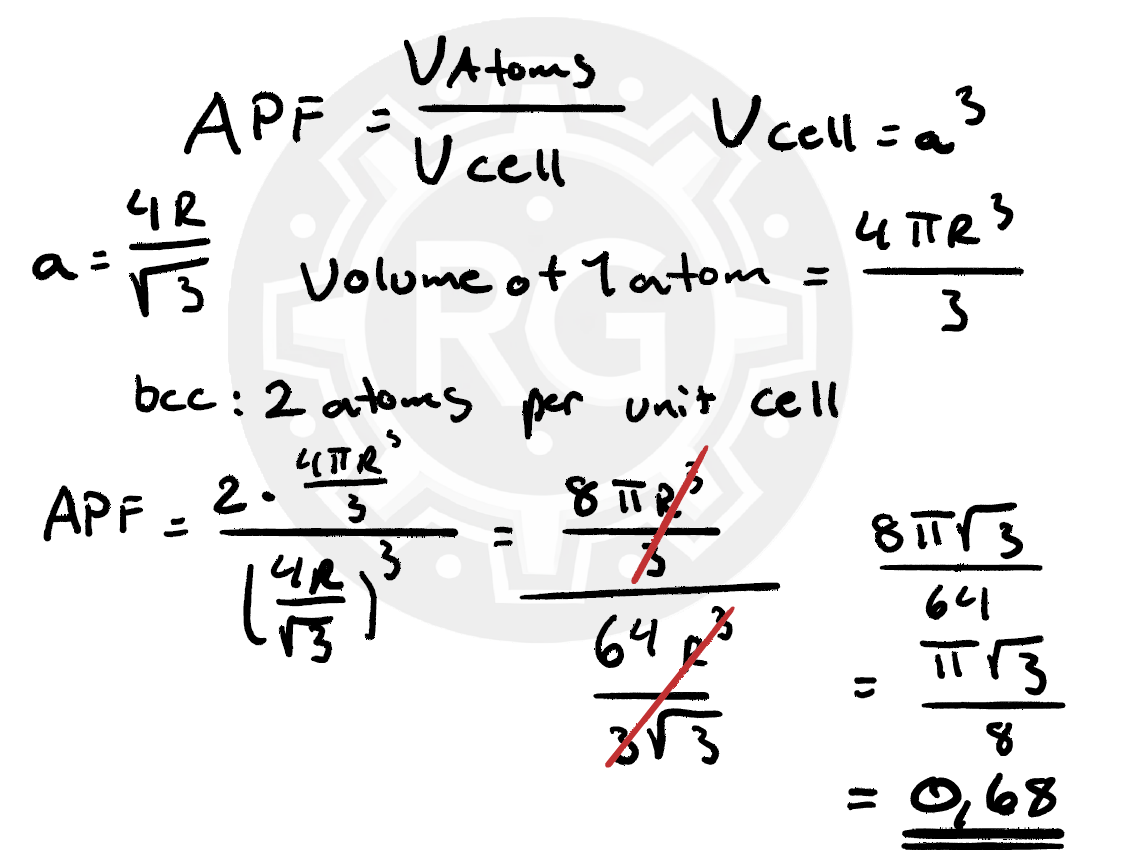 APF = VAtoms / Vcell   Vcell = a³
a = 4R / √3   Volume of 1 atom = 4πR³ / 3
bcc : 2 atoms per unit cell
APF = (2 · 4πR³ / 3) / (4R / √3)³ = (8πR³ / 3) / (64R³ / 3√3)   8π√3 / 64
= π√3 / 8
= 0,68
RG